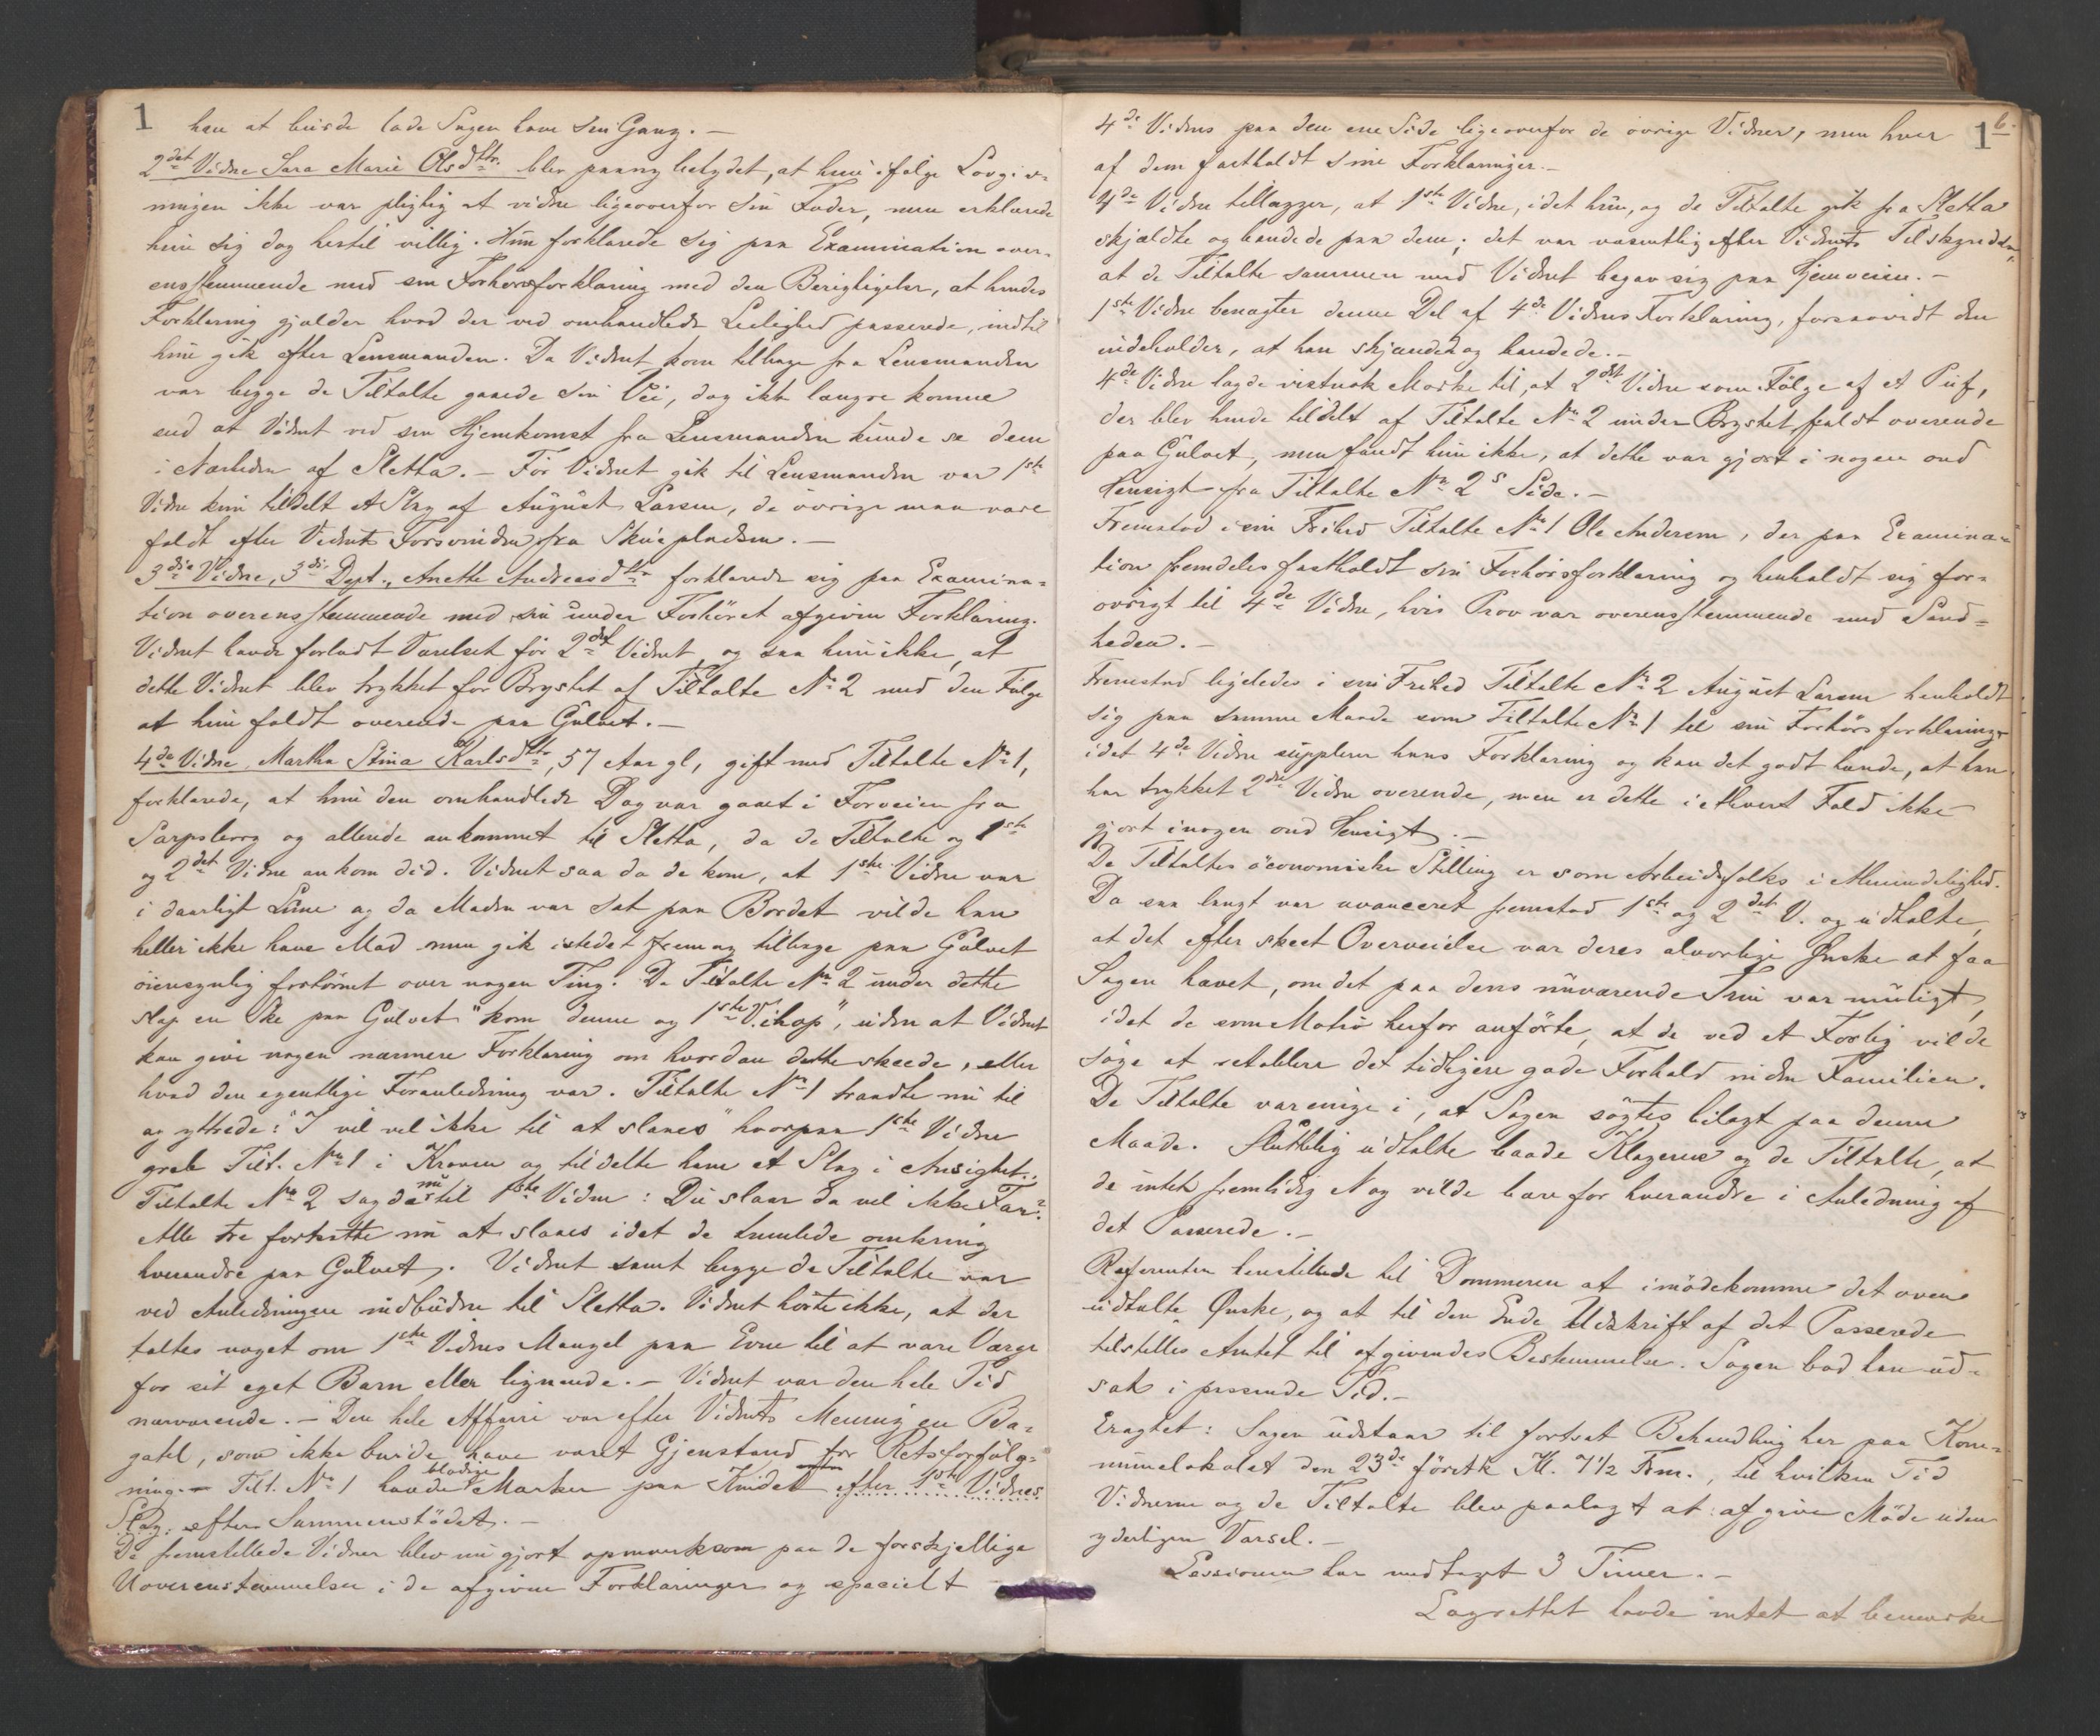 1
han at burde lade Sagen have sin Gang. —
2det Vidne Sara Marie Olsdttr. blev paany betydet, at hun ifølge Lovgiv-
ningen ikke var pligtig at vidne ligeoverfor sin Fader, men erklærede
hun sig dog hertil villig. Hun forklarede sig paa Examination over-
ensstemmende med sin Forhørsforklaring med den Berigtigelse, at hendes
Forklaring gjælder hvad der ved omhandlede Leilighed passerede, indtil
hun gik efter Lensmanden. Da Vidnet kom tilbage fra Lensmanden
var begge de Tiltalte gaaede sin Vei, dog ikke længre komne
end at Vidnet ved sin Hjemkomst fra Lensmanden kunde se dem
i Nærheden af Sletta. — Før Vidnet gik til Lensmanden var 1ste
Vidne kun tildelt et Slag af August Larsen, de øvrige maa være
faldt efter Vidnets Forsvinden fra Skuepladsen. —
3die Vidne, 3die Dept., Anette Andreasdttr forklarede sig paa Examina-
tion overensstemmende med sin under Forhøret afgivne Forklaring.
Vidnet havde forladt Værelset før 2det Vidnet og saa hun ikke, at
dette Vidnet blev trykket for Brystet af Tiltalte No 2 med den Følge
at hun faldt overende paa Gulvet. —
4de Vidne Martha Stina Karlsdttr, 57 Aar gl, gift med Tiltalte No 1,
forklarede, at hun den omhandlede Dag var gaaet i Forveien fra
Sarpsborg og allerede ankommet til Sletta, da de Tiltalte og 1ste
og 2det Vidne ankom did. Vidnet saa da de kom, at 1ste Vidne var
i daarligt Lune og da Maden var sat paa Bordet vilde han
heller ikke have Mad men gik istedet frem og tilbage paa Gulvet
øiensynlig fortørnet over nogen Ting. Da Tiltalte No 2 under dette
slap en Ske paa Gulvet "kom denne og 1ste V. ihop", uden at Vidnet
kan give nogen nærmere Forklaring om hvordan dette skeede, eller
hvad den egentlige Foranledning var. Tiltalte No 1 traadte nu til
og yttrede: "I vil vel ikke til at slaaes" hvorpaa 1ste Vidne
greb Tilt. No 1 i Kraven og tildelte ham et Slag i Ansigtet.
Tiltalte No 2 sagde nu til 1ste Vidne: Du slaar da vel ikke Far?
Alle tre fortsatte nu at slaaes idet de tumlede omkring
hverandre paa Gulvet. Vidnet samt begge de Tiltalte var
ved Anledningen indbudne til Sletta. Vidnet hørte ikke, at der
taltes noget om 1ste Vidnes Mangel paa Evne til at være Værge
for sit eget Barn eller lignende. — Vidnet var den hele Tid
nærværende. — Den hele Affaire var efter Vidnets Mening en Ba-
gatel, som ikke burde have været Gjenstand for Retsforfølg-
ning. — Tilt. No 1 havde blodige Mærker paa Kindet efter 1ste Vidnes
Slag. efter Sammenstødet. —
De fremstillede Vidner blev nu gjort opmærksom paa de forskjellige
Uoverensstemmelser i de afgivne Forklaringer og specielt
1
6.
4de Vidnes paa den ene Side ligeoverfor de øvrige Vidner, men hver
af dem fastholdt sine Forklaringer. —
4de Vidne tillægger, at 1ste Vidne, idet hun, og de Tiltalte gik fra Sletta
skjældte og bandede paa dem; det var væsentlig efter Vidnets Tilskyndelse,
at de Tiltalte sammen med Vidnet begav sig paa Hjemveien. —
1ste Vidne benægter denne Del af 4de Vidnes Forklaring, forsaavidt den
indeholder, at han skjændede og bandede. —
4de Vidne lagde vistnok Mærke til, at 2det Vidne som Følge af et Puf,
der blev hende tildelt af Tiltalte No 2 under Brystet faldt overende
paa Gulvet, men fandt hun ikke, at dette var gjort i nogen ond
Hensigt fra Tiltalte No 2s Side. —
Fremstod i sin Frihed Tiltalte No 1 Ole Andersen, der paa Examina-
tion fremdeles fastholdt sin Forhørsforklaring og henholdt sig for-
øvrigt til 4de Vidne, hvis Prov var overensstemmende med Sand-
heden. —
Fremstod ligeledes i sin Frihed Tiltalte No 2 August Larsen henholdt
sig paa samme Maade som Tiltalte No 1 til sin Forhørsforklaring
idet 4de Vidne supplerer hans Forklaring og kan det godt hænde, at han
har trykket 2det Vidne overende, men er dette i ethvert Fald ikke
gjort i nogen ond Hensigt. —
De Tiltaltes øconomiske Stilling er som Arbeidsfolks i Almindelighed.
Da saa langt var avanceret fremstod 1ste og 2det V. og udtalte,
at det efter skeet Overveielse var deres alvorlige Ønske at faa
Sagen hævet, om det paa dens nuværende Trin var muligt,
idet de som Motiv herfor anførte, at de ved et Forlig vilde
søge at retablere det tidligere gode Forhold inden Familien.
De Tiltalte var enige i, at Sagen søgtes bilagt paa denne
Maade. Sluttelig udtalte baade Klagerne og de Tiltalte, at
de intet fremtidig Nag vilde bære for hverandre i Anledning af
det Passerede. —
Referenten henstillede til Dommeren at imødekomme det oven
udtalte Ønske, og at til den Ende Udskrift af det Passerede
tilstilles Amtet til afgivendes Bestemmelse. Sagen bad han ud-
sat i passende Tid. —
Eragtet: Sagen udstaar til fortsat Behandling her paa Kom-
munelokalet den 23de førstk Kl. 7 1/2 Fm., til hvilken Tid
Vidnerne og de Tiltalte blev paalagt at afgive Møde uden
yderligere Varsel. —
Sessionen har medtaget 3 Timer. —
Lagrettet havde intet at bemærke